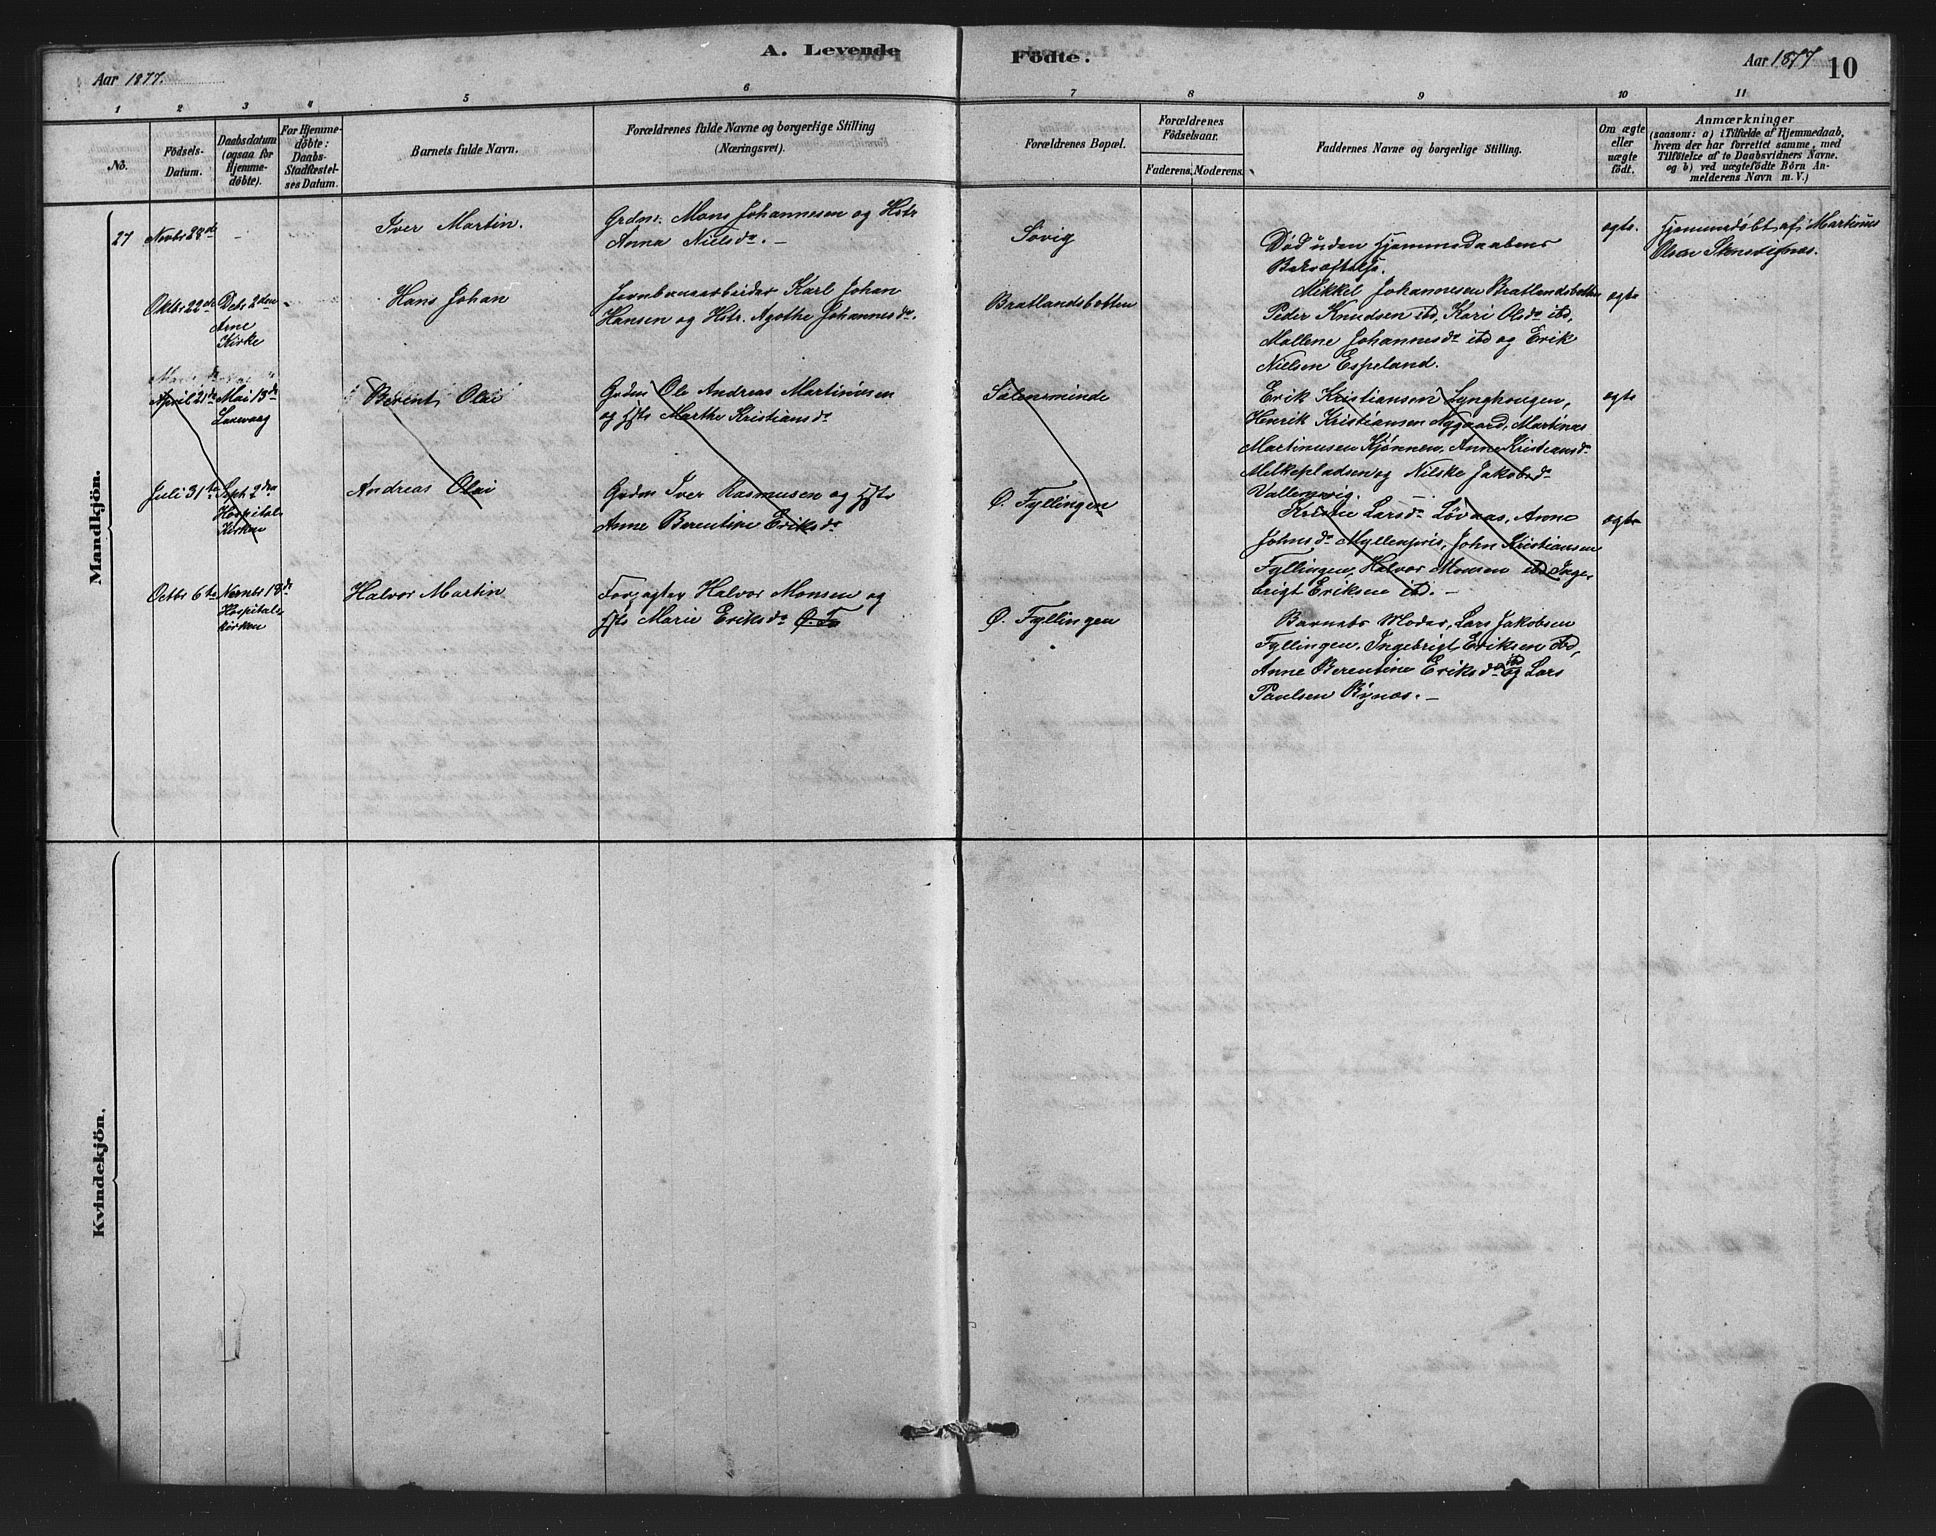 A. Levende Födte.
Aar 1877.
Aar 1877 10
1 2 3 4 5 6 7 8 9 10 11
No.
Födsels-Datum.
Daabsdatum (ogsaa for Hjemmedöbte).
For Hjemmedöbte: Daabs-Stadfæstelses Datum.
Barnets fulde Navn.
Forældrenes fulde Navne og borgerlige Stilling
(Næringsvei).
Forældrenes Bopæl.
Forældrenes Födselsaar.
Faderens. Moderens.
Faddernes Navne og borgerlige Stilling.
Om ægte eller uægte födt.
Anmærkninger
(saasom: a) i Tilfælde af Hjemmedaab,
hvem der har forrettet samme, med
Tilföielse af to Daabsvidners Navne.
og b) ved uægtefödte Börn An-
melderens Navn m. V.)
Mandkjön.
27 Novbr 28de - Iver Martin.
Grdm. Mons Johannesen og Hstr
Anna Nielsdr. -
Søvig
Død uden Hjemmedaabens
Bekræftelse.
ægte.
Hjemmedøbt af Martinus
Olsen Stensvignæs.
Oktbr 22de Debr 2den
Arne
Kirke
-
Hans Johan
Jernbanearbeider Karl Johan
Hansen og Hstr. Agothe Johannesdr.
Bratlandsbotten
Mikkel Johannesen Bratlandsbotten
Peder Knudsen ibd, Kari Olsdr ibd,
Mallene Johannesdr ibd og Erik
Nielsen Espeland.
ægte
April 21de Mai 13de
Laxevaag
Berent Olai
Grdm Ole Andreas Martinusen
og Hstr Marthe Kristiansdr
Salensminde
Erik Kristiansen Lynghougen,
Henrik Kristiansen Nygaard, Martinus
Martinusen Kjønnen, Anne Kristiansdr
Melkepladsen og Nilske Jakobsdr
ægte
Juli 31te Sept 2den
Hospitals
Kirken
Andreas Olai
Grdm Iver Rasmusen og Hstr
Anne Berentine Eriksdr
Ø. Fyllingen
Larsdr Løvaas, Anne
Johnsdr Myllenpris, John Kristiansen
Fyllingen, Halvor Monsen ibd Inge-
brigt Eriksen ibd. -
ægte
Octbr 6te Novbr 18de
Hospitals
kirken
Halvor Martin
Forpagter Halvor Monsen og
Hstr Marie Eriksdr Ø. Fy
Ø. Fyllingen
Barnets Moder, Lars Jakobsen
Fyllingen, Ingebrigt Eriksen ibd,
Anne Berentine Eriksdr ibd og Lars
Paulsen Bjnæs. -
Kvindekjön.